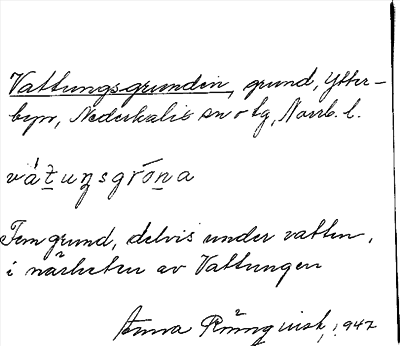 Vattungsgrunden, grund, Ytter-
byn, Nederkalix sn o tg, Norrb. l.
vátuŋsgróna
Fem grund, delvis under vatten,
i närheten av Vattungen
Anna Rönnqvist, 1947